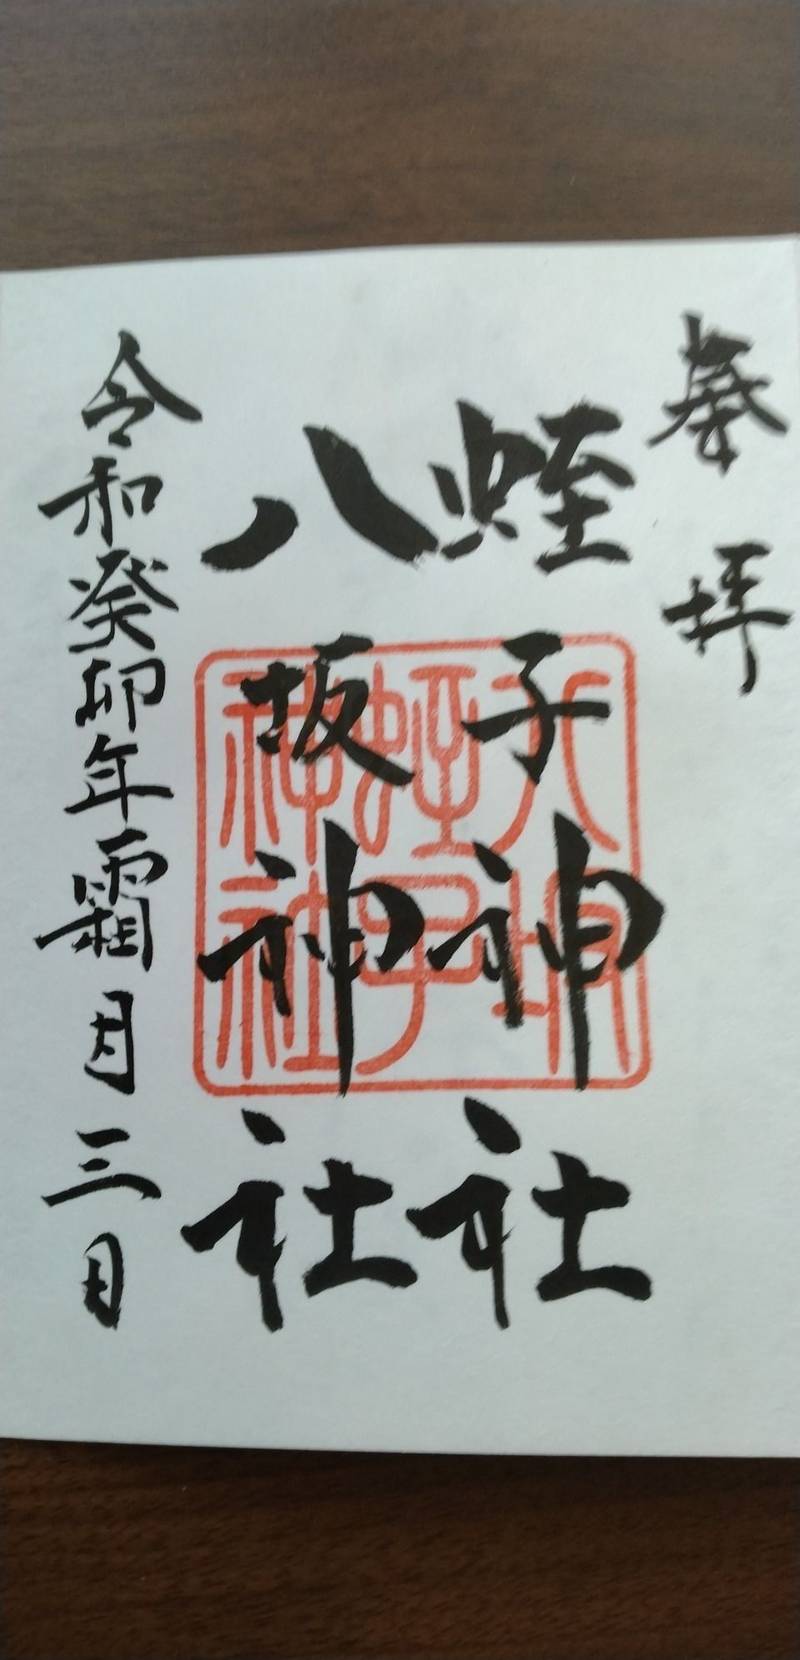 奉拝
蛭子神社
八坂神社
令和癸卯年霜月三日
八坂
蛭子
神社